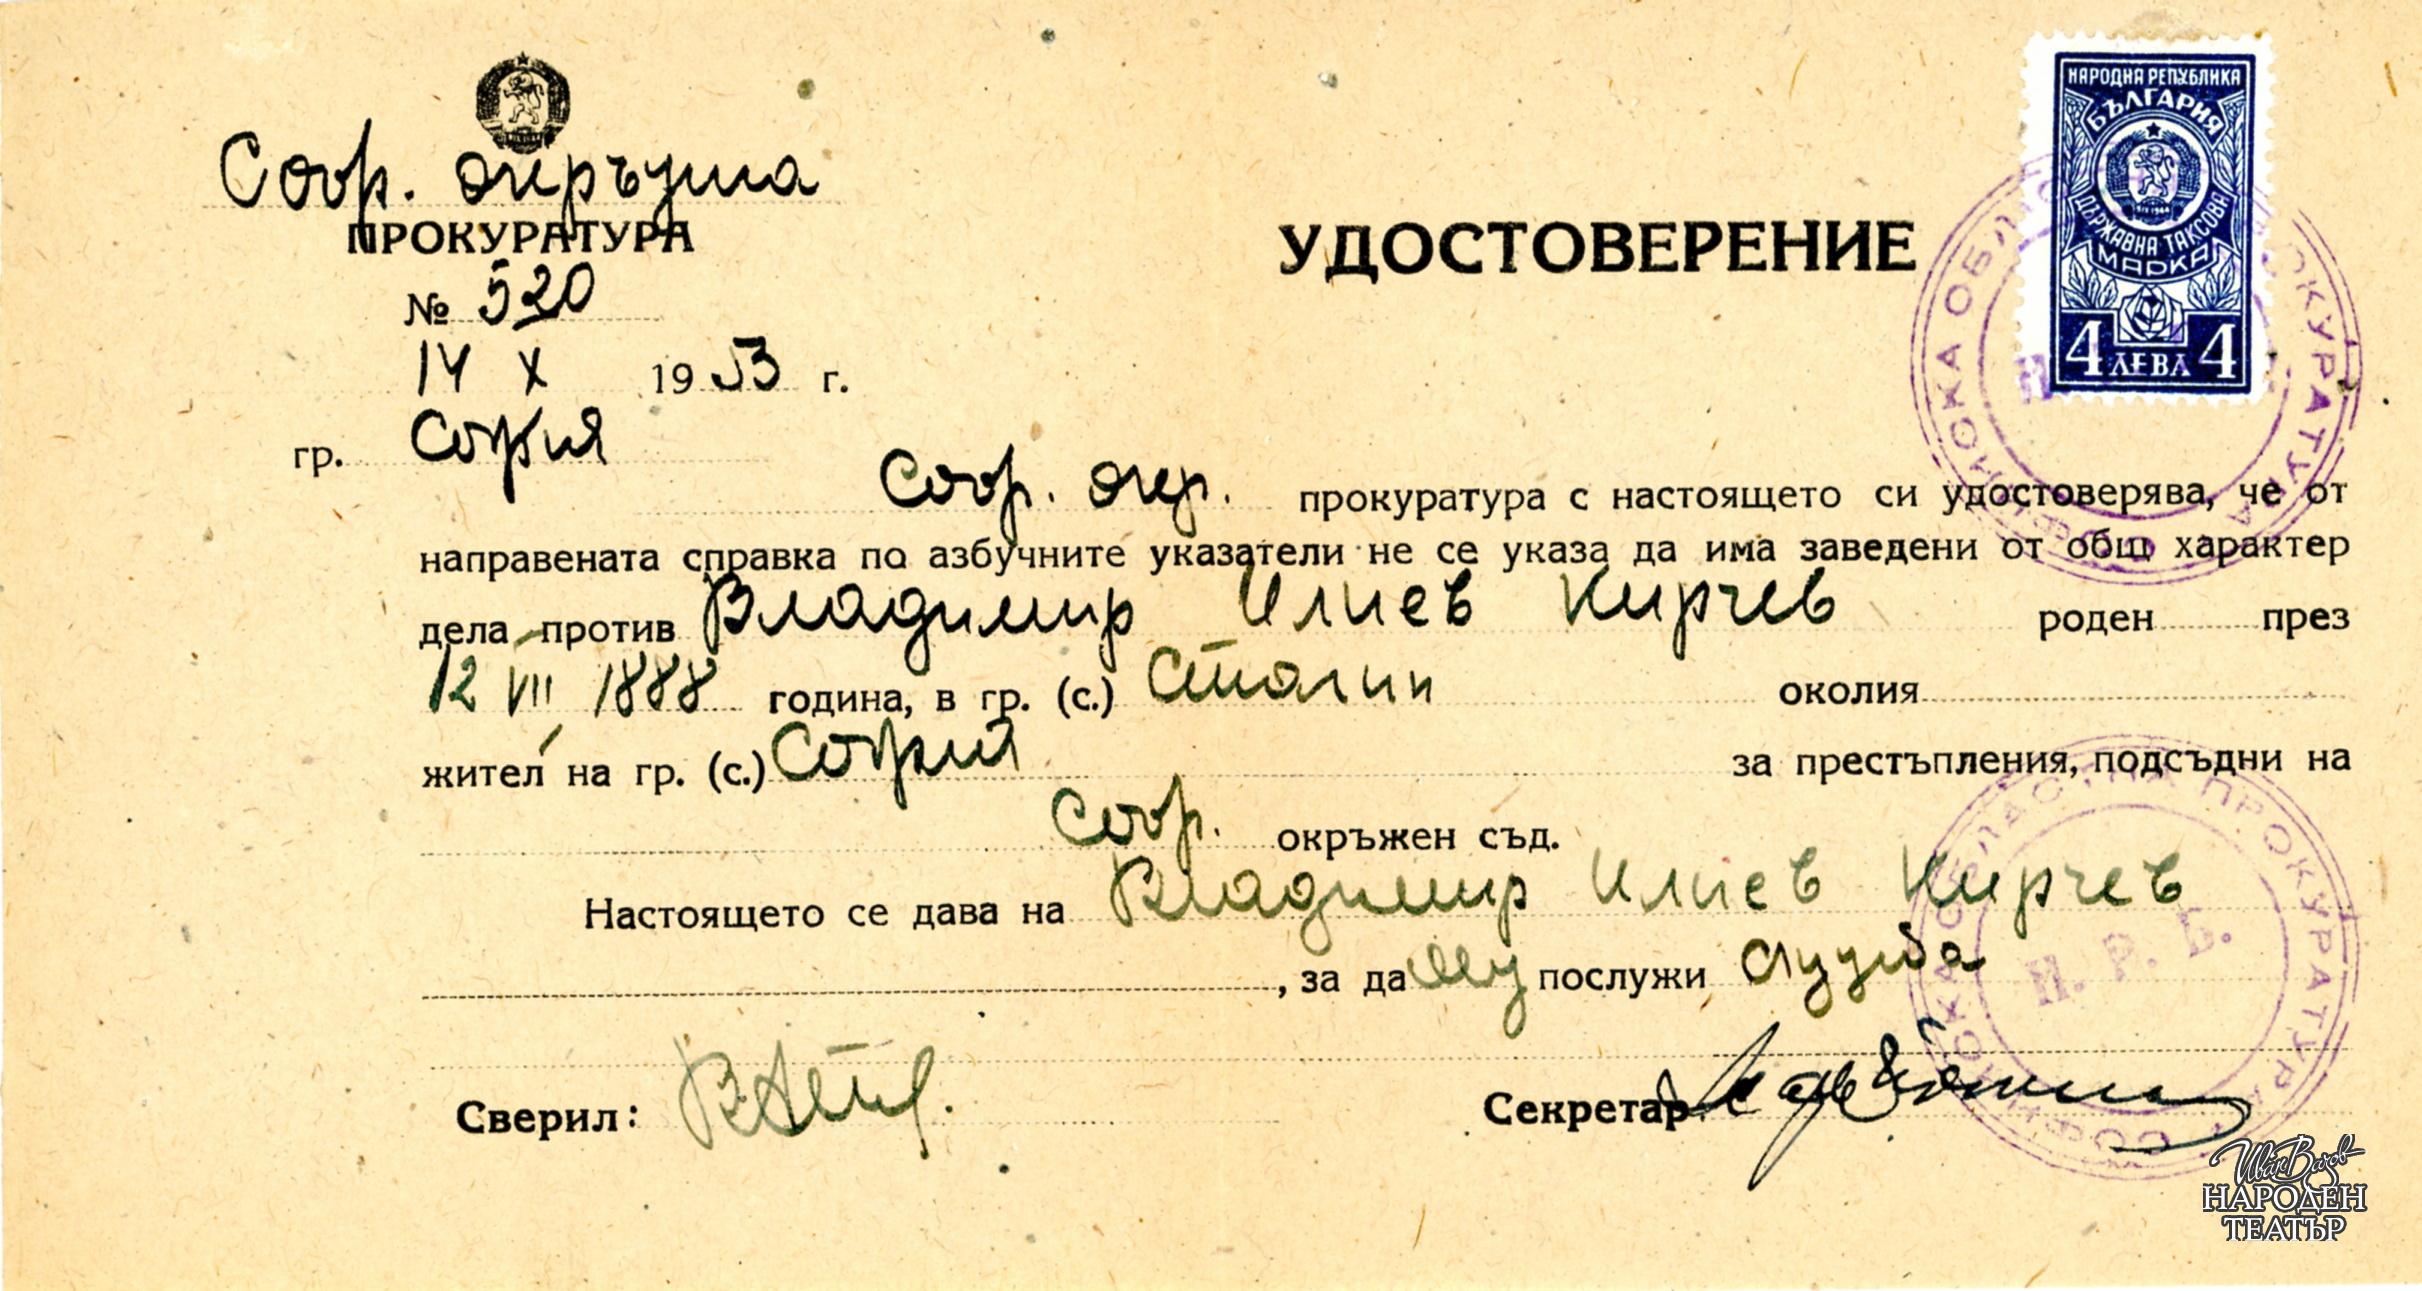 Соф. окръжна
ПРОКУРАТУРА
№ 520
14 X 1953 г.
гр. София
УДОСТОВЕРЕНИЕ
НАРОДНА РЕПУБЛИКА
БЪЛГАРИЯ
ДЪРЖАВНА ТАКСОВА
МАРКА
4 ЛЕВА 4
Соф. окр. прокуратура с настоящето си удостоверява, че от
направената справка по азбучните указатели не се указа да има заведени от общ характер
дела против Владимир Илиев Кирчев роден през
12 VII 1888 година, в гр. (с.) Сталин околия
жител на гр. (с.) София за престъпления, подсъдни на
Соф. окръжен съд.
Настоящето се дава на Владимир Илиев Кирчев
, за да му послужи служба
Сверил:
Секретар:
СОФИЙСКА ОБЛАСТНА ПРОКУРАТУРА
Н. Р. Б.
Иван Вазов
НАРОДЕН
ТЕАТЪР